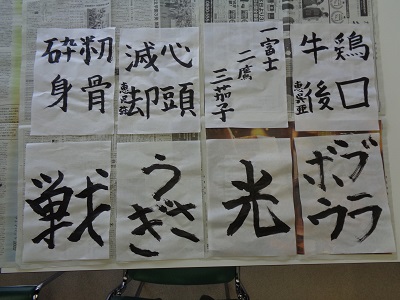 鶏口
牛後
一富士
二鷹
三茄子
心頭
滅却
粉骨
砕身
ブラ
ボウ
光
うさ
ぎ
戦